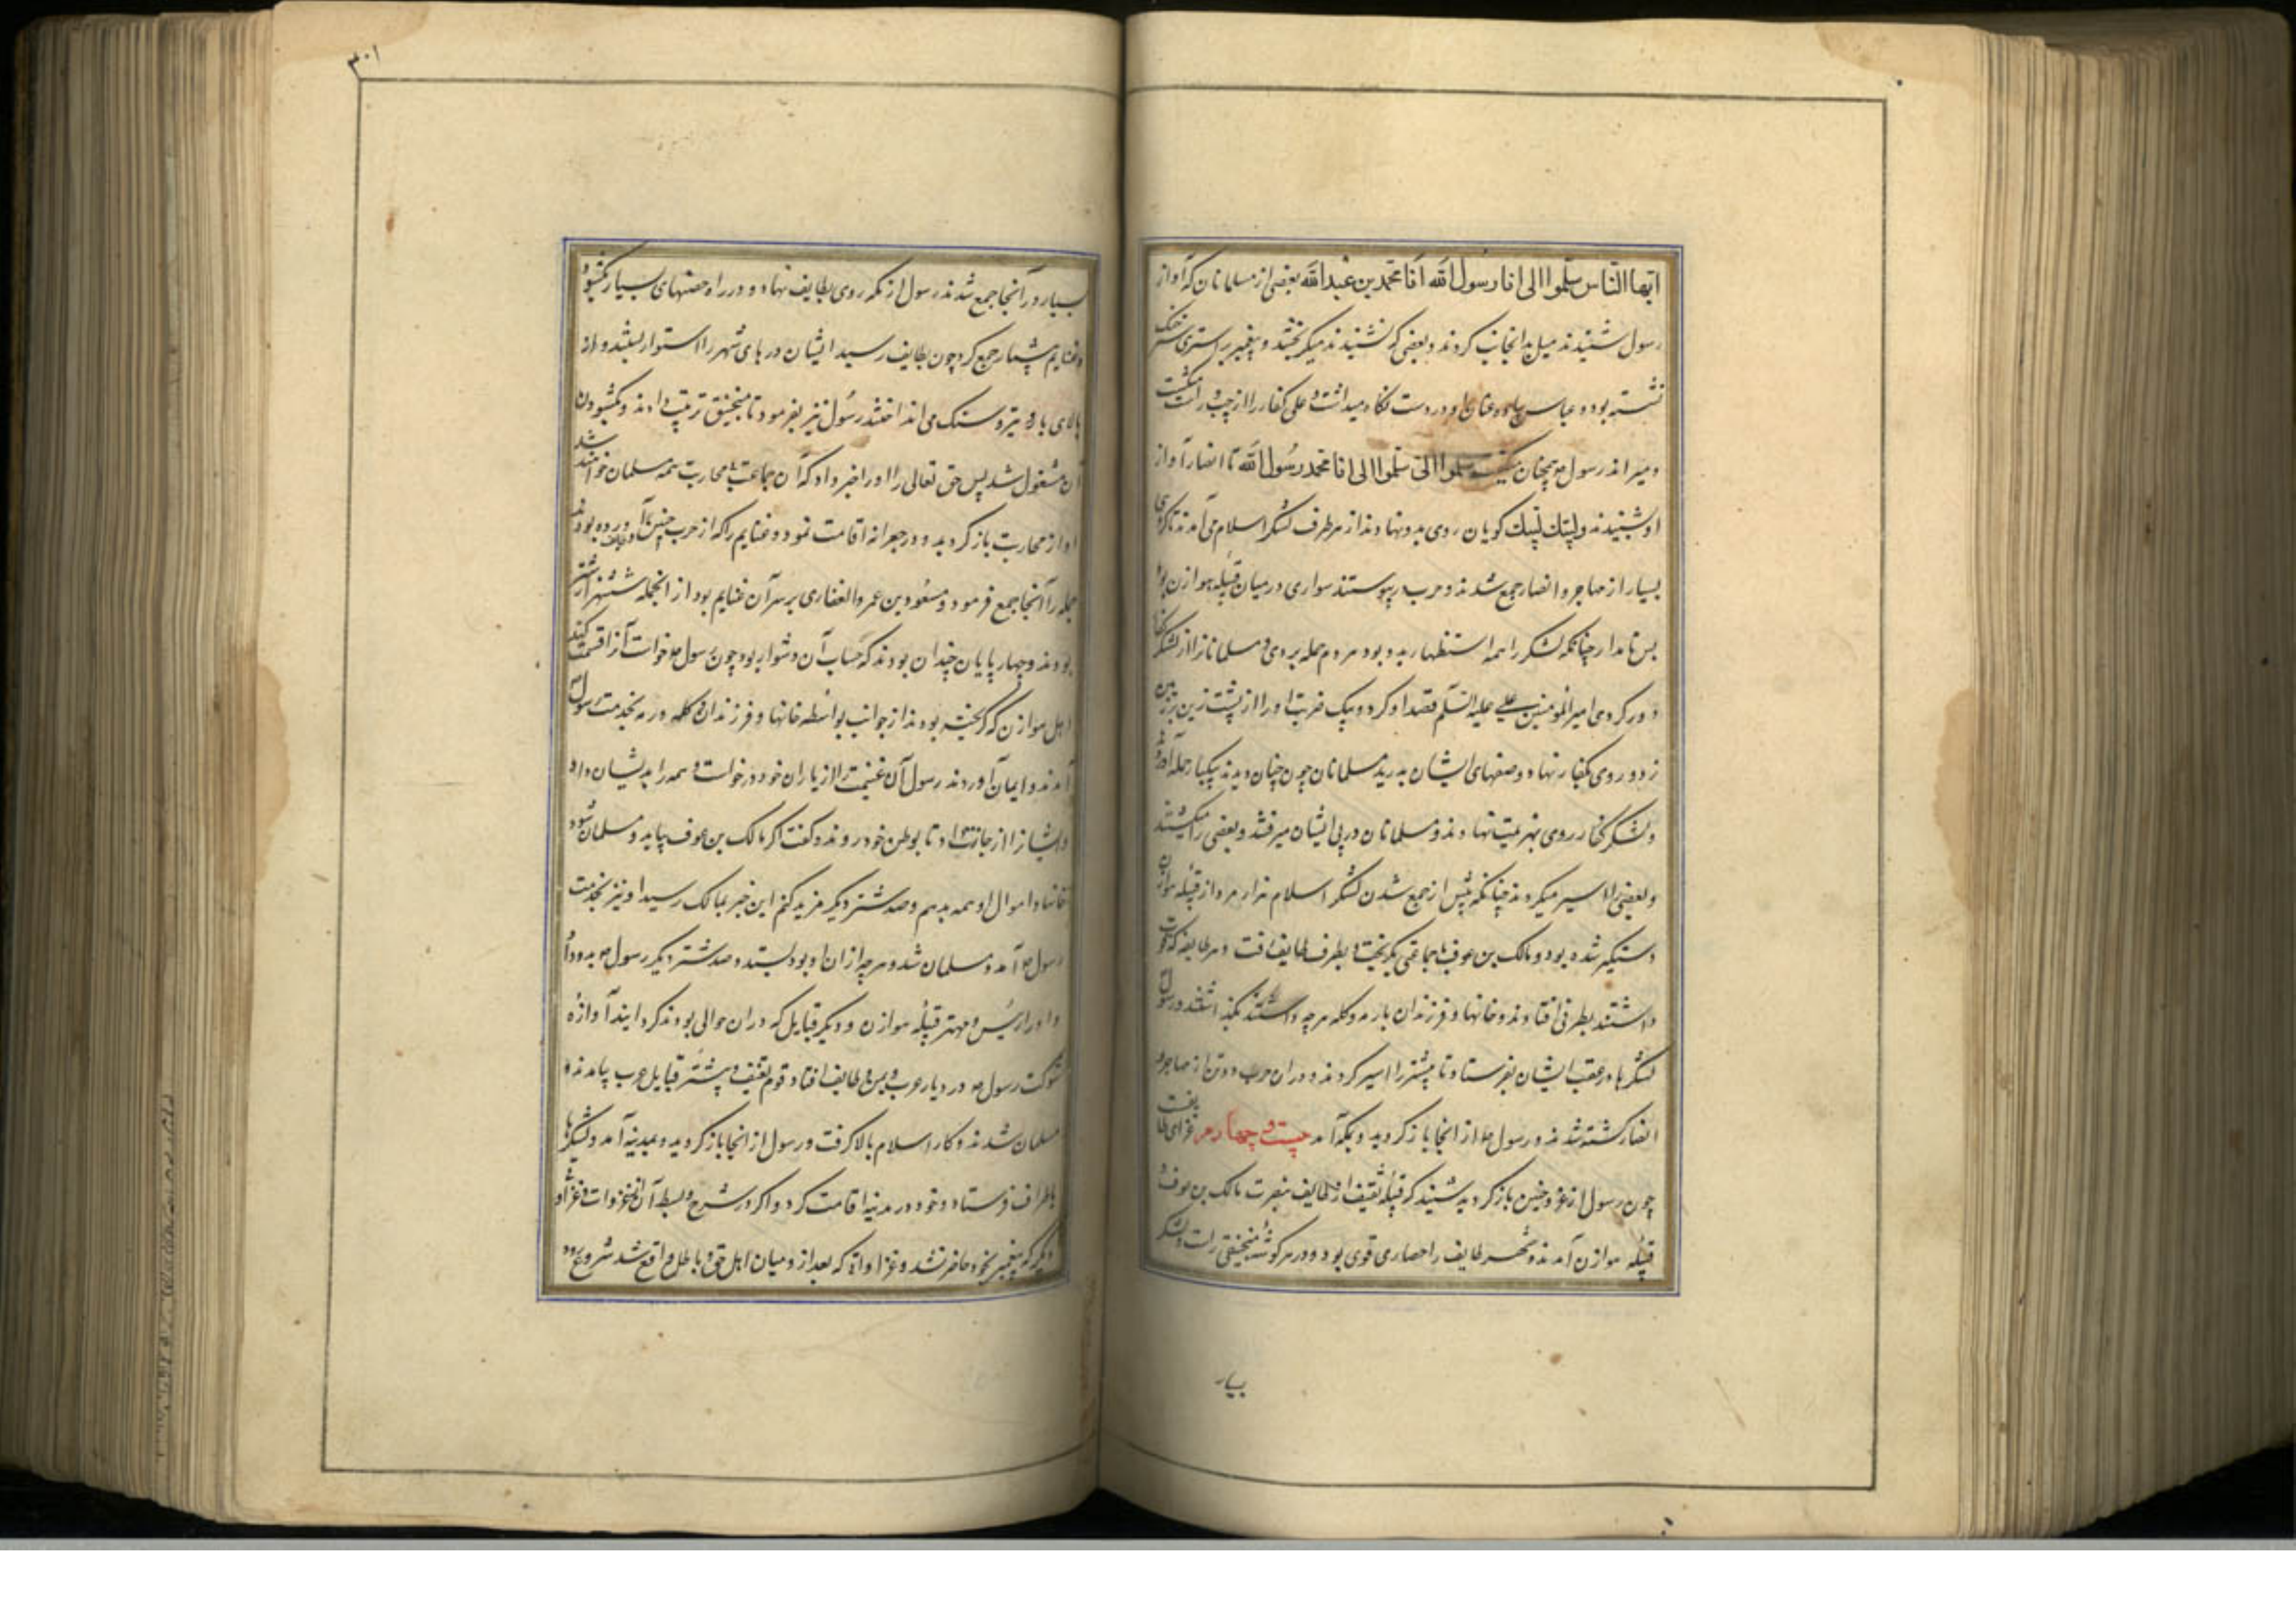 ایها الناس هلموا الی انا رسول الله انا محمد بن عبدالله بعضی از مسلمانان که آواز
رسول شنیدند میل بدانجانب کردند و بعضی که نشنیدند میگریختند و پیغمبر بر استری خنک
نشسته بود و عباس عنان او در دست نگاه میداشت و علی کفار را از چپ و راست میکشت
و میراند رسول همچنان میگفت هلموا الی هلموا الی انا محمد رسول الله تا انصار آواز
او شنیدند و لبیك لبیك گویان روی بدو نهادند از هر طرف لشکر اسلام می آمدند تا گروهی
بسیار از مهاجر و انصار جمع شدند و حرب در پیوستند سواری در میان قبیله هوازن بود
بس نامدار چنانکه لشکر را همه استظهار بدو بود هر دم حمله بردی و مسلمانانرا از لشکر کفار
دور کردی امیر المومنین علی علیه السلم قصد او کرد و بیک ضربت او را از پشت زین بر زمین
زد و روی بکفار نهاد و صفهای ایشان بدرید مسلمانان چون چنان دیدند بیکبار حمله آوردند
و لشکر کفار روی بهزیمت نهادند و مسلمانان در پی ایشان میرفتند و بعضی را میکشتند
و بعضی را اسیر میکردند چنانکه پیش از جمع شدن لشکر اسلام هزار مرد از قبیله هوازن
دستگیر شده بود و مالک بن عوف با جماعتی بگریخت و بطرف طایف رفت و هر طایفه که قوت
داشتند بطرفی افتادند و خانها و فرزندان با رمه و گله هرچه داشتند بگذاشتند و رسول
لشکرها در عقب ایشان بفرستاد تا بیشتر را اسیر کردند و در ان حرب دو تن از مهاجر و
انصار کشته شدند و رسول از انجا باز گردید و بمکه آمد بیست و چهارم غزای طایف
چون رسول از غزو حنین باز گردید شنید که قبیله ثقیف از طایف بنصرت مالک بن عوف و
قبیله هوازن آمدند و شهر طایف را حصاری قوی بود و در هر گوشه منجنیقی راست و لشکر
بسیار
۳۰۱
بسیار در آنجا جمع شدند رسول از مکه روی بطایف نهاد و در راه حصنهای بسیار بکشود
و غنایم بیشمار جمع کرد چون بطایف رسید ایشان درهای شهر را استوار ببستند و از
بالای بارو تیر و سنک می انداختند رسول نیز بفرمود تا منجنیق ترتیب دادند و بکشودن
آن مشغول شد پس حق تعالی او را خبر داد که آن جماعت بی محاربت همه مسلمان خواهند شد
او از محاربت باز گردید و در جعرانه اقامت نمود و غنایم را که از حرب حنین و طایف آورده بودند
جمله را آنجا جمع فرمود و مسعود بن عمرو الغفاری بر سر آن غنایم بود از انجمله شش هزار شتر
بودند و چهار پایان چندان بودند که حساب آن دشوار بود چون رسول خواست آنرا قسمت کند
اهل هوازن که گریخته بودند از جوانب بواسطه خانها و فرزندان و گله و رمه بخدمت رسول
آمدند و ایمان آوردند رسول آن غنیمت را از یاران خود درخواست و همه را بدیشان داد
و ایشانرا اجازت داد تا بوطن خود روند و گفت اگر مالک بن عوف بیاید و مسلمان شود
خانها و اموال او همه بدهم و صد شتر دیگر مزید کنم این خبر بمالک رسید او نیز بخدمت
رسول آمد و مسلمان شد و هرچه از ان او بود بستد و صد شتر دیگر رسول بدو داد
و او را رئیس و مهتر قبیله هوازن و دیگر قبایل که در ان حوالی بودند گردانید آوازه
شوکت رسول در دیار عرب و یمن و طایف افتاد قوم ثقیف و بیشتر قبایل عرب بیامدند و
مسلمان شدند و کار اسلام بالا گرفت و رسول از انجا باز گردید و بمدینه آمد و لشکرها
باطراف فرستاد و خود در مدینه اقامت کرد و اگر در شرح و بسط آن غزوات و غزاو
دیگر که پیغمبر بخود حاضر نشد و غزاواتی که بعد از و میان اهل حق و باطل واقع شد شروع رود